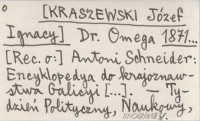 [KRASZEWSKI Józef
Ignacy] Dr. Omega 1871...
[Rec. o:] Antoni Schneider:
Encyklopedya do krajoznaw-
stwa Galicyi [...]. — Ty-
dzień Polityczny, Naukowy,